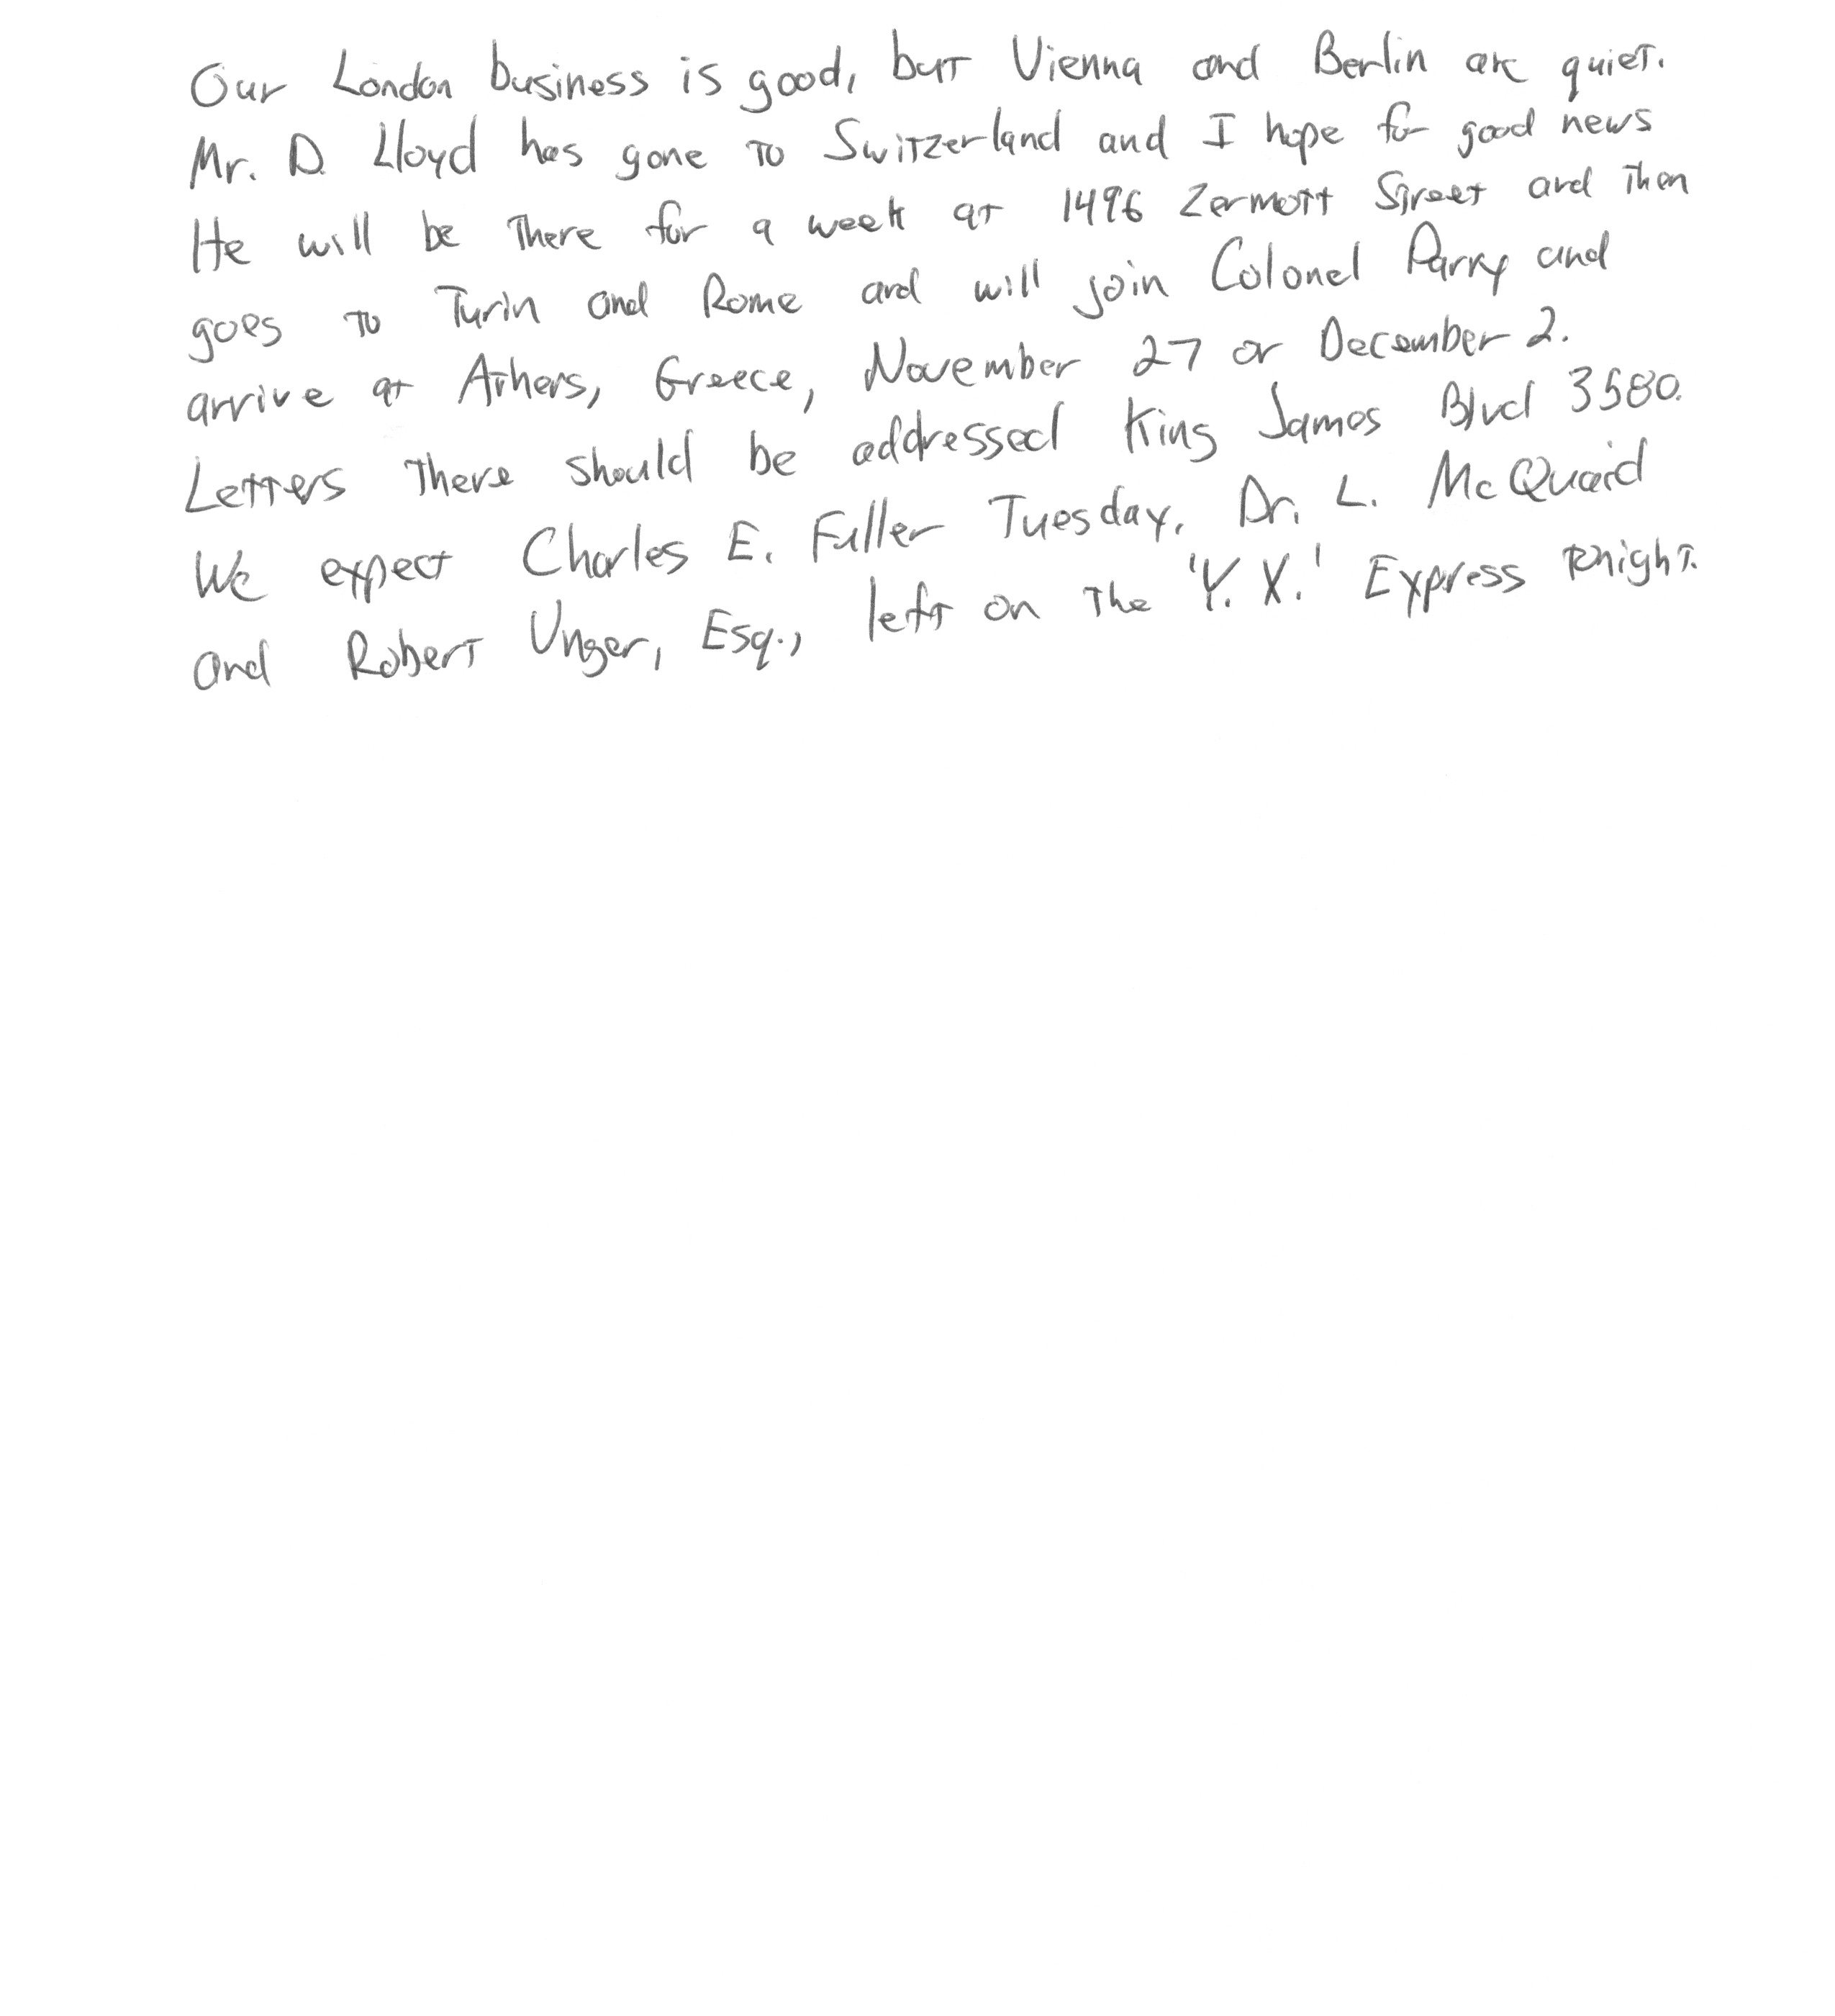 Our London business is good, but Vienna and Berlin are quiet.
Mr. D. Lloyd has gone to Switzerland and I hope for good news
He will be there for a week at 1496 Zermott Street and then
goes to Turin and Rome and will join Colonel Parry and
arrive at Athens, Greece, November 27 or December 2.
Letters there should be addressed King James Blvd 3580.
We expect Charles E. Fuller Tuesday. Dr. L. McQuaid
and Robert Unger, Esq., left on the 'Y. X.' Express tonight.